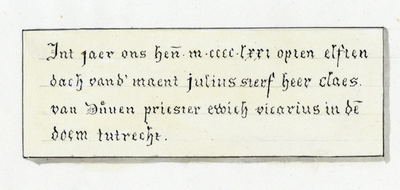 Int jaer ons heñ · m · cccc · lxxi opten elften
dach vand' maent julius sterf heer claes.
van Důven priester ewich vicarius in dē
doem tutrecht.